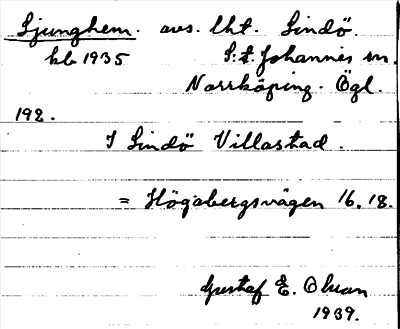 Ljunghem. avs. lht. Lindö.
kb 1935 S:t Johannes sn.
Norrköping. Ögl.
192.
I Lindö Villastad.
= Högabergsvägen 16, 18.
Gustaf E. Olsson
1939.